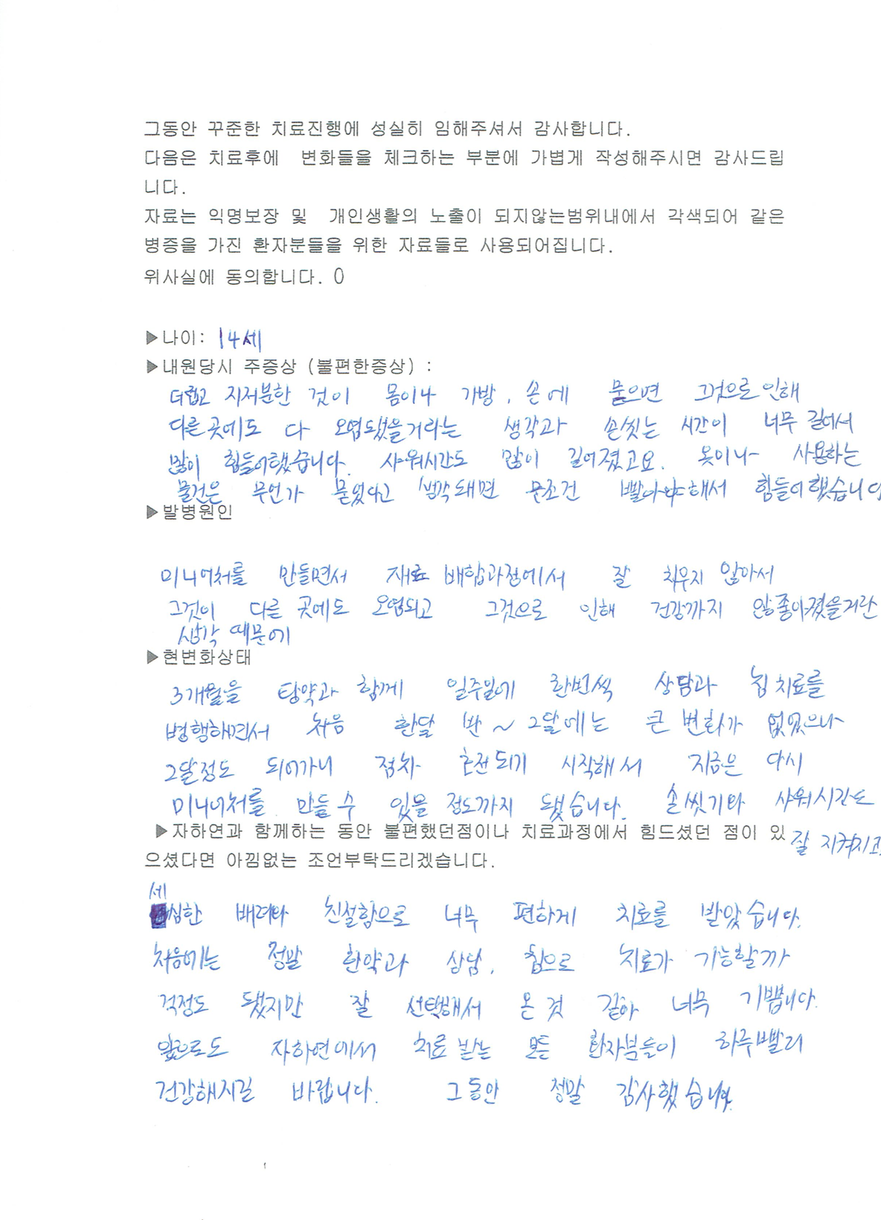 그동안 꾸준한 치료진행에 성실히 임해주셔서 감사합니다.
다음은 치료후에 변화들을 체크하는 부분에 가볍게 작성해주시면 감사드립
니다.
자료는 익명보장 및 개인생활의 노출이 되지않는범위내에서 각색되어 같은
병증을 가진 환자분들을 위한 자료들로 사용되어집니다.
위사실에 동의합니다. 0
▶나이: 14세
▶내원당시 주증상 (불편한증상) :
더럽고 지저분한 것이 몸이나 가방, 손에 묻으면 그것으로 인해
다른곳에도 다 오염됐을거라는 생각과 손씻는 시간이 너무 길어서
많이 힘들어했습니다. 샤워시간도 많이 길어졌고요. 옷이나 사용하는
물건은 무언가 묻었다고 생각돼면 무조건 빨아야해서 힘들어했습니다
▶발병원인
미니어처를 만들면서 재료 배합과정에서 잘 치우지 않아서
그것이 다른 곳에도 오염되고 그것으로 인해 건강까지 안좋아졌을거란
생각 때문에
▶현변화상태
3개월을 탕약과 함께 일주일에 한번씩 상담과 침치료를
병행하면서 처음 한달 반 ~ 2달에는 큰 변화가 없었으나
2달정도 되어가니 점차 호전되기 시작해서 지금은 다시
미니어처를 만들 수 있을 정도까지 됐습니다. 손씻기와 샤워시간도
잘 지켜지고.
▶자하연과 함께하는 동안 불편했던점이나 치료과정에서 힘드셨던 점이 있
으셨다면 아낌없는 조언부탁드리겠습니다.
세심한 배려와 친절함으로 너무 편하게 치료를 받았습니다.
처음에는 정말 한약과 상담, 침으로 치료가 가능할까
걱정도 됐지만 잘 선택해서 온 것 같아 너무 기쁩니다.
앞으로도 자하연에서 치료 받는 모든 환자분들이 하루빨리
건강해지길 바랍니다. 그동안 정말 감사했습니다.